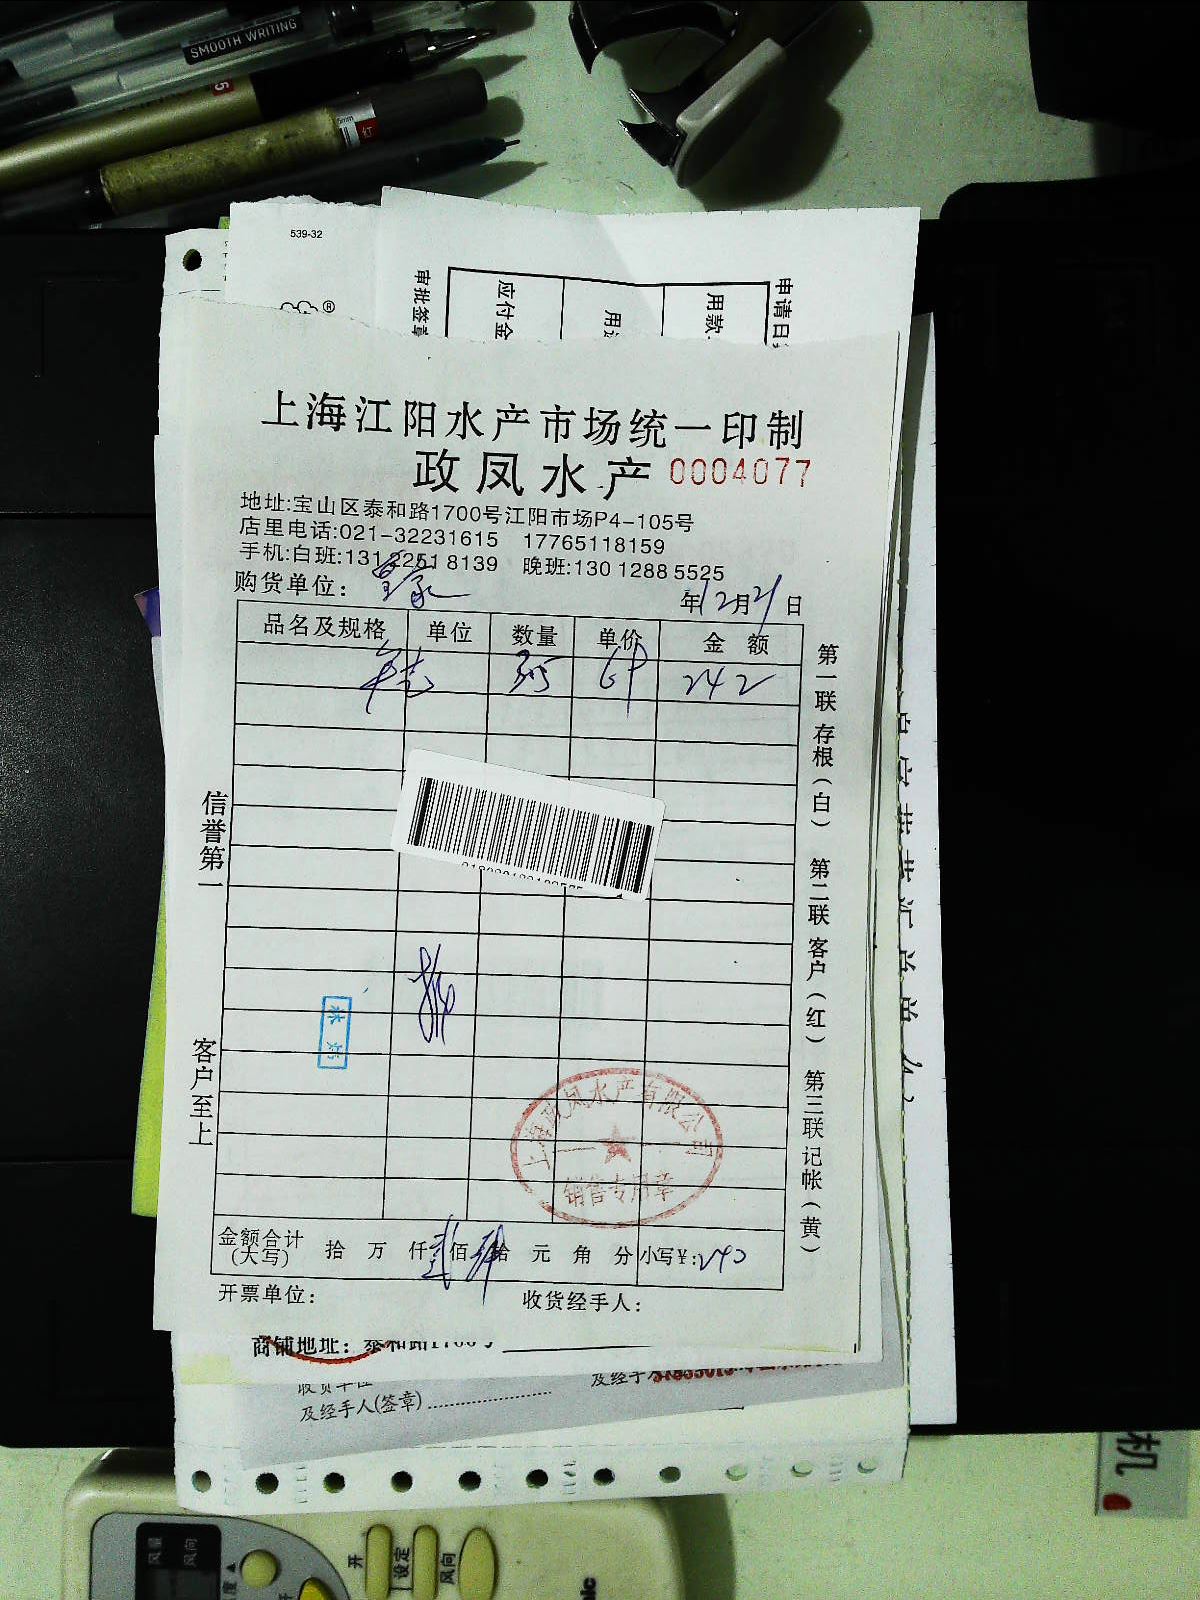 SMOOTH WRITING
红
539-32
®
审批签
应付金
用
用款
申请日
上海江阳水产市场统一印制
政凤水产 0004077
地址:宝山区泰和路1700号江阳市场P4-105号
店里电话:021-32231615 17765118159
手机:白班:131 2251 8139 晚班:130 1288 5525
购货单位:
年12月21日
品名及规格 单位 数量 单价 金额
242
信誉第一
客户至上
第一联 存根(白) 第二联 客户(红) 第三联 记帐(黄)
上海政凤水产有限公司
销售专用章
金额合计(大写) 拾 万 仟 佰 拾 元 角 分 小写¥:240
开票单位: 收货经手人:
商铺地址: 泰和路1700号
收货单位
及经手人(签章)
及经手人
机
风量
风向
开
设定
风向